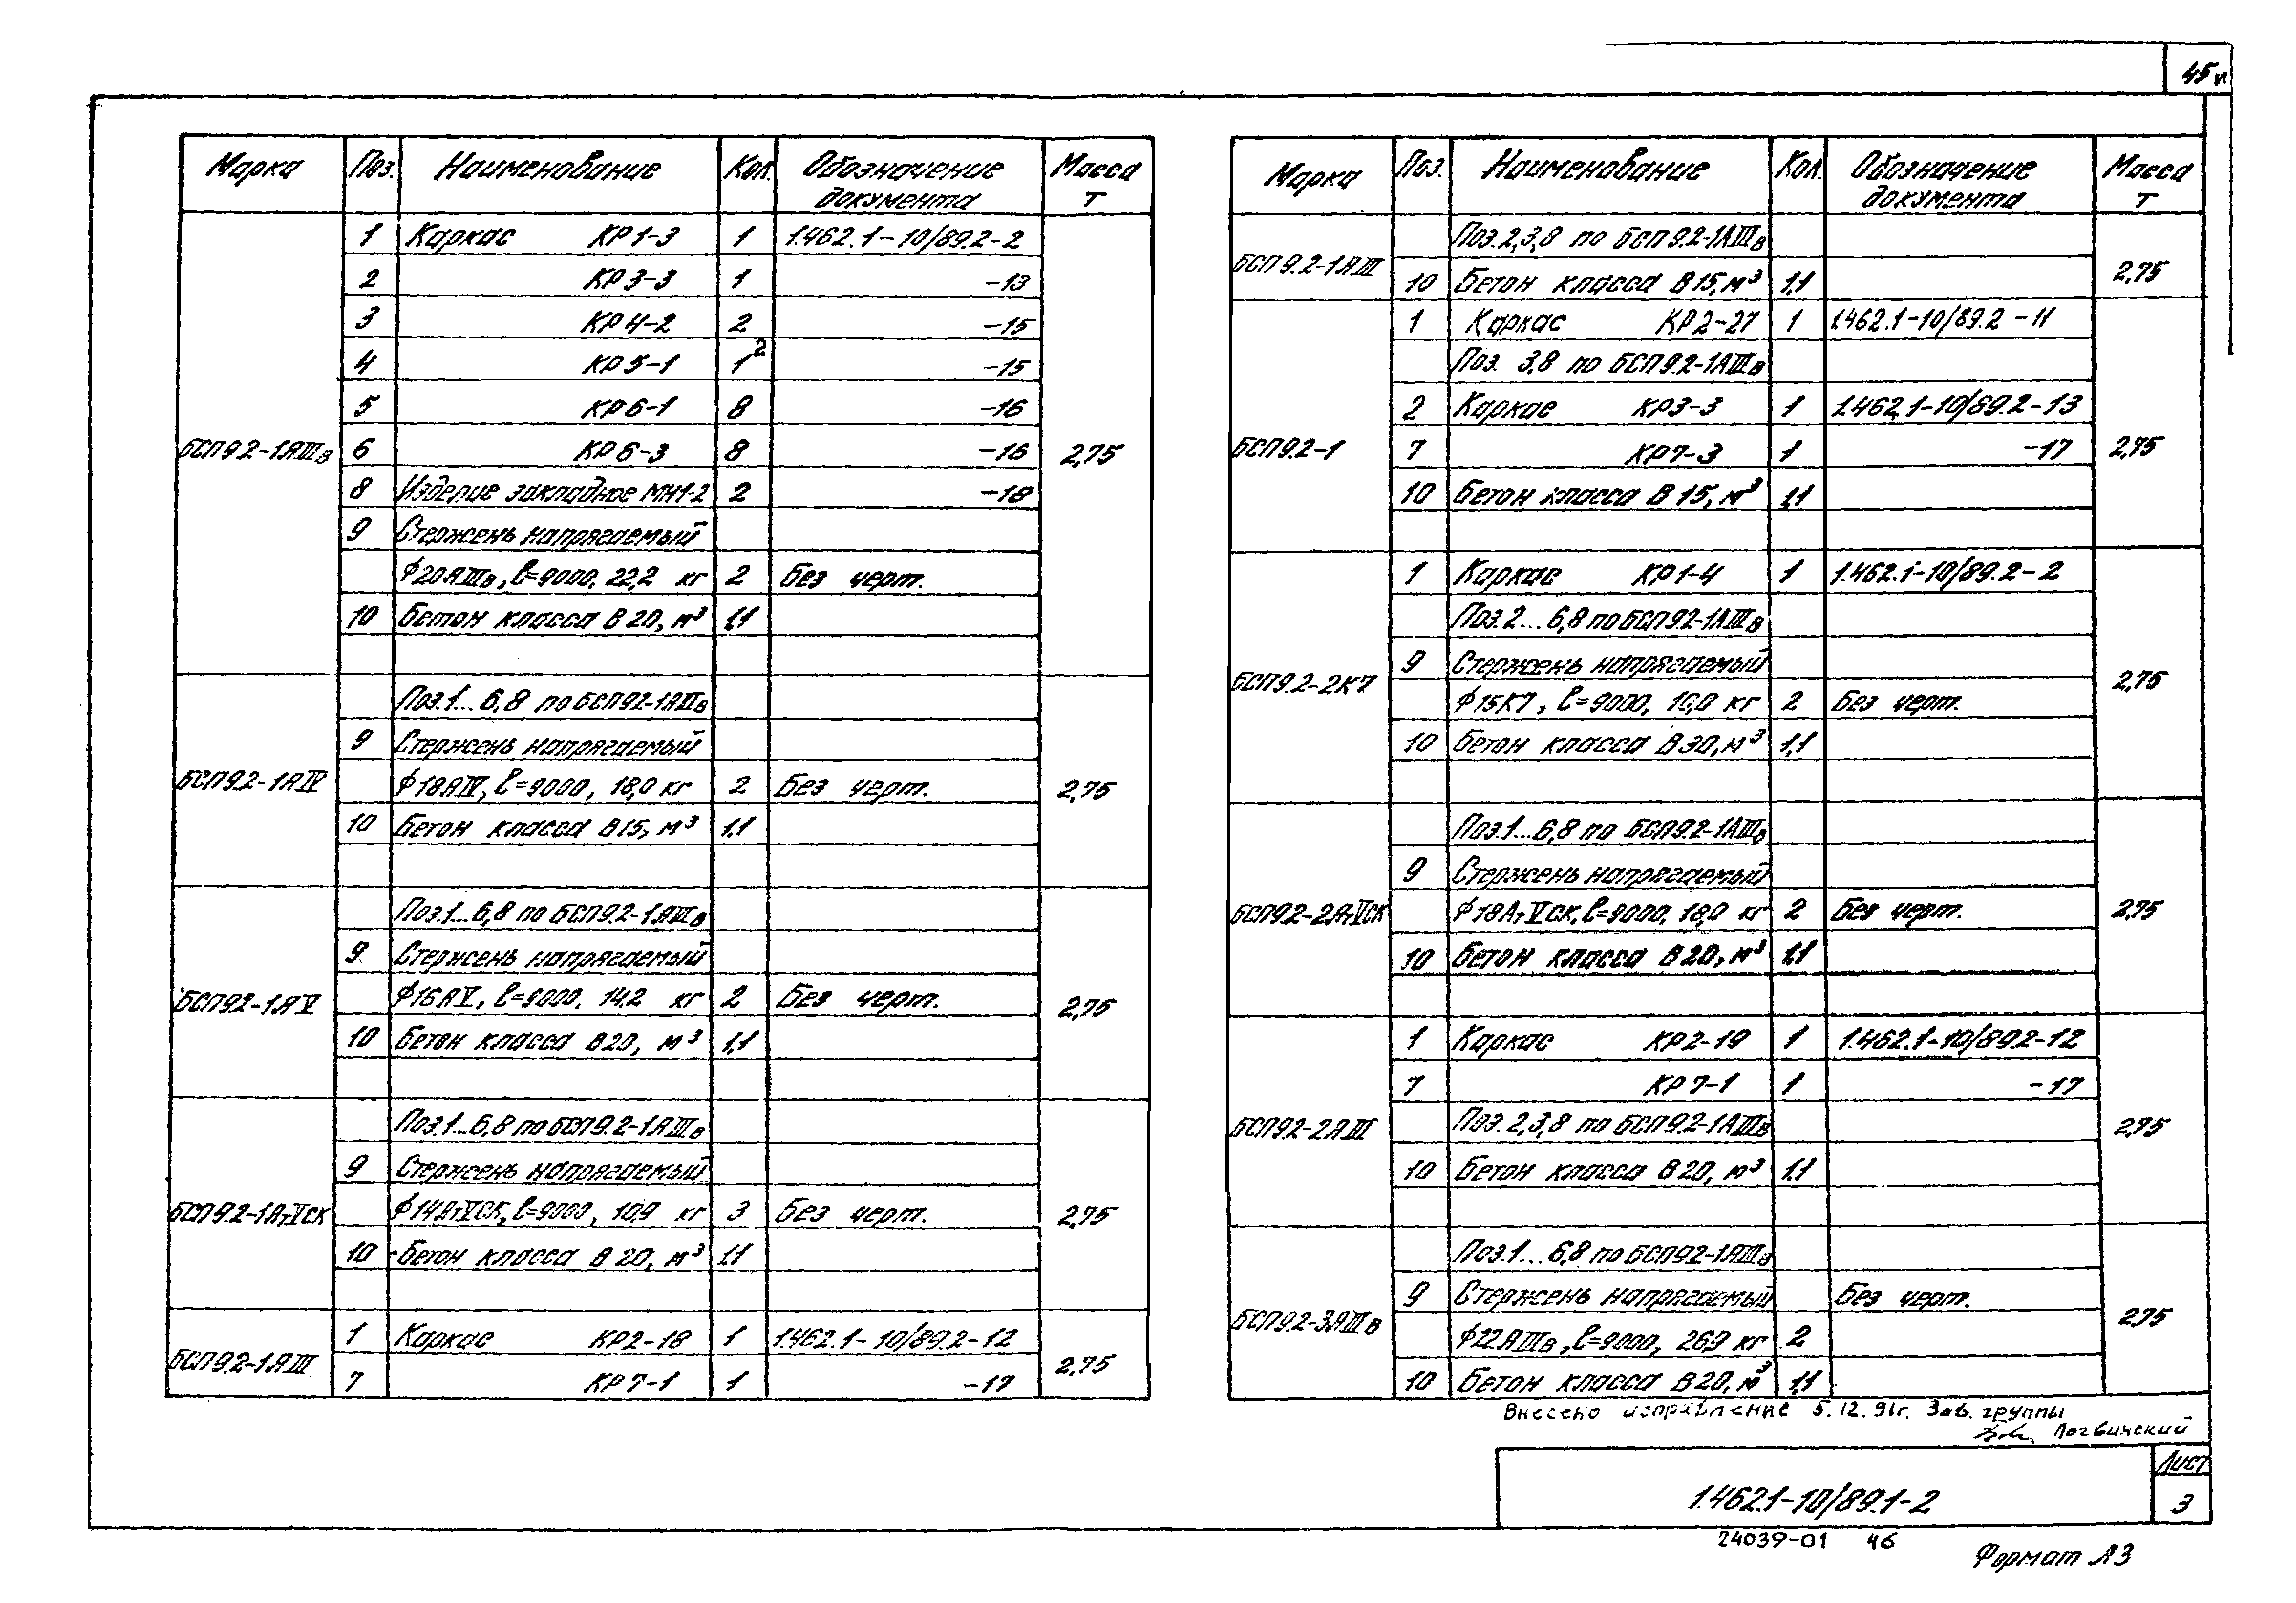 45и
Марка Поз. Наименование Кол. Обозначение документа Масса т
БСП9.2-1АIIIв 2,75
1 Каркас КР1-3 1 1.462.1-10/89.2-2
2 КР3-3 1 -13
3 КР4-2 2 -15
4 КР5-1 1 2 -15
5 КР6-1 8 -16
6 КР6-3 8 -16
8 Изделие закладное МН1-2 2 -18
9 Стержень напрягаемый
ф20АIIIв, ℓ=9000, 22,2 кг 2 Без черт.
10 Бетон класса В20, м³ 1,1
БСП9.2-1АIV 2,75
Поз.1...6,8 по БСП9.2-1АIIIв
9 Стержень напрягаемый
ф18АIV, ℓ=9000, 18,0 кг 2 Без черт.
10 Бетон класса В15, м³ 1,1
БСП9.2-1АV 2,75
Поз.1...6,8 по БСП9.2-1АIIIв
9 Стержень напрягаемый
ф16АV, ℓ=9000, 14,2 кг 2 Без черт.
10 Бетон класса В20, м³ 1,1
БСП9.2-1АтVСК 2,75
Поз.1...6,8 по БСП9.2-1АIIIв
9 Стержень напрягаемый
ф14АтVСК, ℓ=9000, 10,9 кг 3 Без черт.
10 Бетон класса В20, м³ 1,1
БСП9.2-1АIII 2,75
1 Каркас КР2-18 1 1.462.1-10/89.2-12
7 КР7-1 1 -17
Марка Поз. Наименование Кол. Обозначение документа Масса т
БСП9.2-1АIII 2,75
Поз.2,3,8 по БСП9.2-1АIIIв
10 Бетон класса В15, м³ 1,1
БСП9.2-1 2,75
1 Каркас КР2-27 1 1.462.1-10/89.2-11
Поз. 3,8 по БСП9.2-1АIIIв
2 Каркас КР3-3 1 1.462.1-10/89.2-13
7 КР7-3 1 -17
10 Бетон класса В15, м³ 1,1
БСП9.2-2К7 2,75
1 Каркас КР1-4 1 1.462.1-10/89.2-2
Поз.2...6,8 по БСП9.2-1АIIIв
9 Стержень напрягаемый
ф15К7, ℓ=9000, 10,0 кг 2 Без черт.
10 Бетон класса В30, м³ 1,1
БСП9.2-2АтVСК 2,75
Поз.1...6,8 по БСП9.2-1АIIIв
9 Стержень напрягаемый
ф18АтVСК, ℓ=9000, 18,0 кг 2 Без черт.
10 Бетон класса В20, м³ 1,1
БСП9.2-2АIII 2,75
1 Каркас КР2-19 1 1.462.1-10/89.2-12
7 КР7-1 1 -17
Поз.2,3,8 по БСП9.2-1АIIIв
10 Бетон класса В20, м³ 1,1
БСП9.2-3АIIIв 2,75
Поз.1...6,8 по БСП9.2-1АIIIв
9 Стержень напрягаемый Без черт.
ф22АIIIв, ℓ=9000, 26,9 кг 2
10 Бетон класса В20, м³ 1,1
Внесено исправление 5.12.91г. Зав. группы
Логвинский
1.462.1-10/89.1-2
Лист
3
24039-01 46
Формат А3